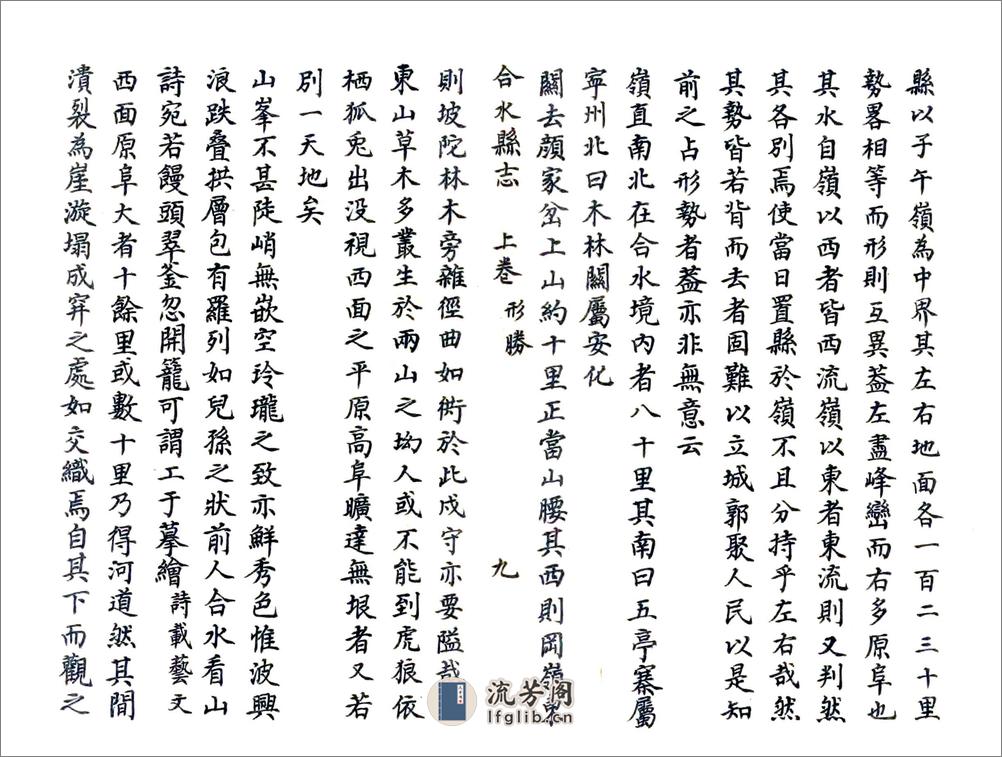 縣以子午嶺為中界其左右地面各一百二三十里
勢畧相等而形則互異葢左盡峰巒而右多原阜也
其水自嶺以西者皆西流嶺以東者東流則又判然
其各別焉使當日置縣於嶺不且分持乎左右哉然
其勢皆若背而去者固難以立城郭聚人民以是知
前之占形勢者葢亦非無意云
嶺直南北在合水境內者八十里其南曰五亭寨屬
寧州北曰木林關屬安化
關去顔家岔上山約十里正當山腰其西則岡嶺
合水縣志 上卷 形勝 九
則坡陀林木旁雜徑曲如衖於此戍守亦要隘哉
東山草木多叢生於兩山之坳人或不能到虎狼依
栖狐兎出没視西面之平原高阜曠達無垠者又若
別一天地矣
山峯不甚陡峭無嵌空玲瓏之致亦鮮秀色惟波興
浪跌叠拱層包有羅列如兒孫之狀前人合水看山
詩宛若饅頭翠釜忽開籠可謂工于摹繪詩載藝文
西面原阜大者十餘里或數十里乃得河道然其間
潰裂為崖漩塌成穽之處如交織焉自其下而觀之
流芳阁
lfglib.cn